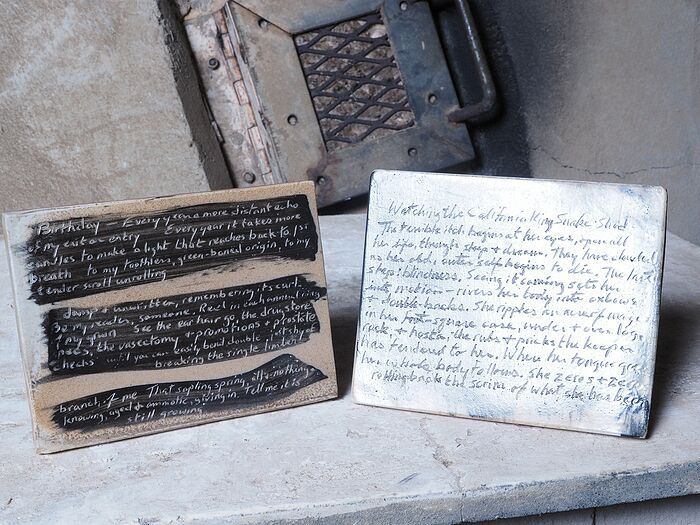 Birthday — Every year a more distant echo
of my exit or entry Every year it takes more
candles to make a light that reaches back to 1st
breath to my toothless, green-boned origin, to my
tender scroll unrolling
damp + unwritten, remembering, it's curl-
Be my reader, someone. Reel in each annual ring
of my growth See the ear hair go, the drug store
knees, the vasectomy + promotions + prostate
checks until you can easily bend double witchy of
breaking the single limberest
branch of me That sapling spring, all-nothing-
knowing, aged + amniotic, giving in Tell me it is
still growing
Watching the California King Snake Shed
The terrible itch begins at her eyes, open all
her life, through sleep + dream. They have clouded
as her old, outer self begins to die. The last
step: blindness. Seeing it coming sets her
into motion – rivers her body into oxbows
+ double-backs. She ripples an nerve of image
in her foot-square case, under + over log +
rock + hosta, the rubs + pricks the keeper
has tendered to her. When her tongue goes
her whole body follows. She zeros + zeros
rolling back the scrim of what she has been